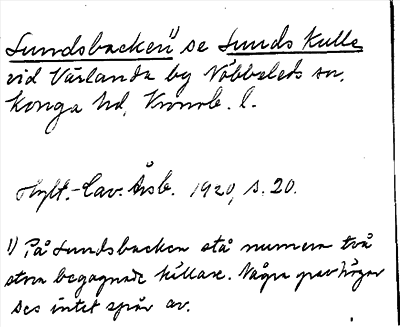 Lundsbacken¹⁾ se Lunds Kulle
vid Värlanda by Nöbbeleds sn,
Konga hd, Kronob. l.
Hylt.-Cav. Årsb. 1920, s. 20.
¹⁾ På Lundsbacken stå numera två
stora begagnade källare. Några gravhögar
ses intet spår av.